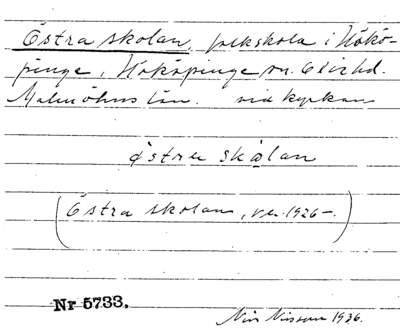 Östra skolan, folkskola i Hökö-
pinge, Hököpinge sn. Oxie hd.
Malmöhus län. vid kyrkan
östra skolan
(Östra skolan, ver. 1926-.)
Nr 5733.
Nils Nilsson 1926.